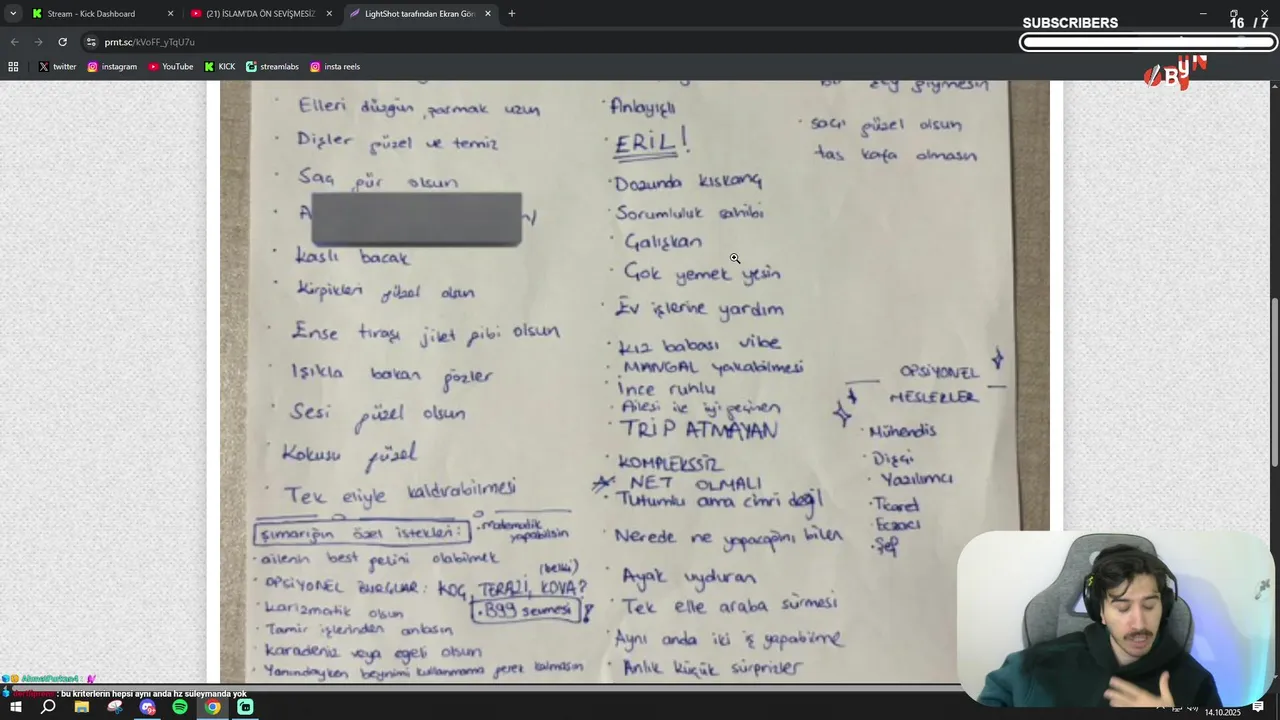 Stream - Kick Dashboard
(21) İSLAM'DA ÖN SEVİŞMESİZ
LightShot tarafından Ekran Gör
prnt.sc/kVoFF_yTqU7u
twitter
instagram
YouTube
KICK
streamlabs
insta reels
SUBSCRIBERS
16 / 7
Elleri düzgün, parmak uzun
Dişler güzel ve temiz
Saç gür olsun
A
Kaslı bacak
Kirpikleri güzel olsun
Ense tıraşı jilet gibi olsun
Işıkla bakan gözler
Sesi güzel olsun
Kokusu güzel
Tek eliyle kaldırabilmesi
Şımarığın özel istekleri:
matematik yapabilsin
ailenin best gelini olabilmek
OPSİYONEL BURÇLAR: KOÇ, TERAZİ, KOVA?
(belki)
Karizmatik olsun
B99 sevmesi!
Tamir işlerinden anlasın
Karadeniz veya egeli olsun
Yanındayken beynimi kullanmama gerek kalmasın
Anlayışlı
ERİL!
Dozunda kıskanç
Sorumluluk sahibi
Çalışkan
Çok yemek yesin
Ev işlerine yardım
Kız babası vibe
MANGAL yakabilmesi
İnce ruhlu
Ailesi ile iyi geçinen
TRİP ATMAYAN
KOMPLEKSSİZ
NET OLMALI
Tutumlu ama cimri değil
Nerede ne yapacağını bilen
Ayak uyduran
Tek elle araba sürmesi
Aynı anda iki iş yapabilme
Anlık küçük sürprizler
giymesin
saçı güzel olsun
tas kafa olmasın
OPSİYONEL
MESLEKLER
Mühendis
Dişçi
Yazılımcı
Ticaret
Eczacı
Şef
AhmetFurkan4 :
: bu kriterlerin hepsi aynı anda hz suleymanda yok
14.10.2025